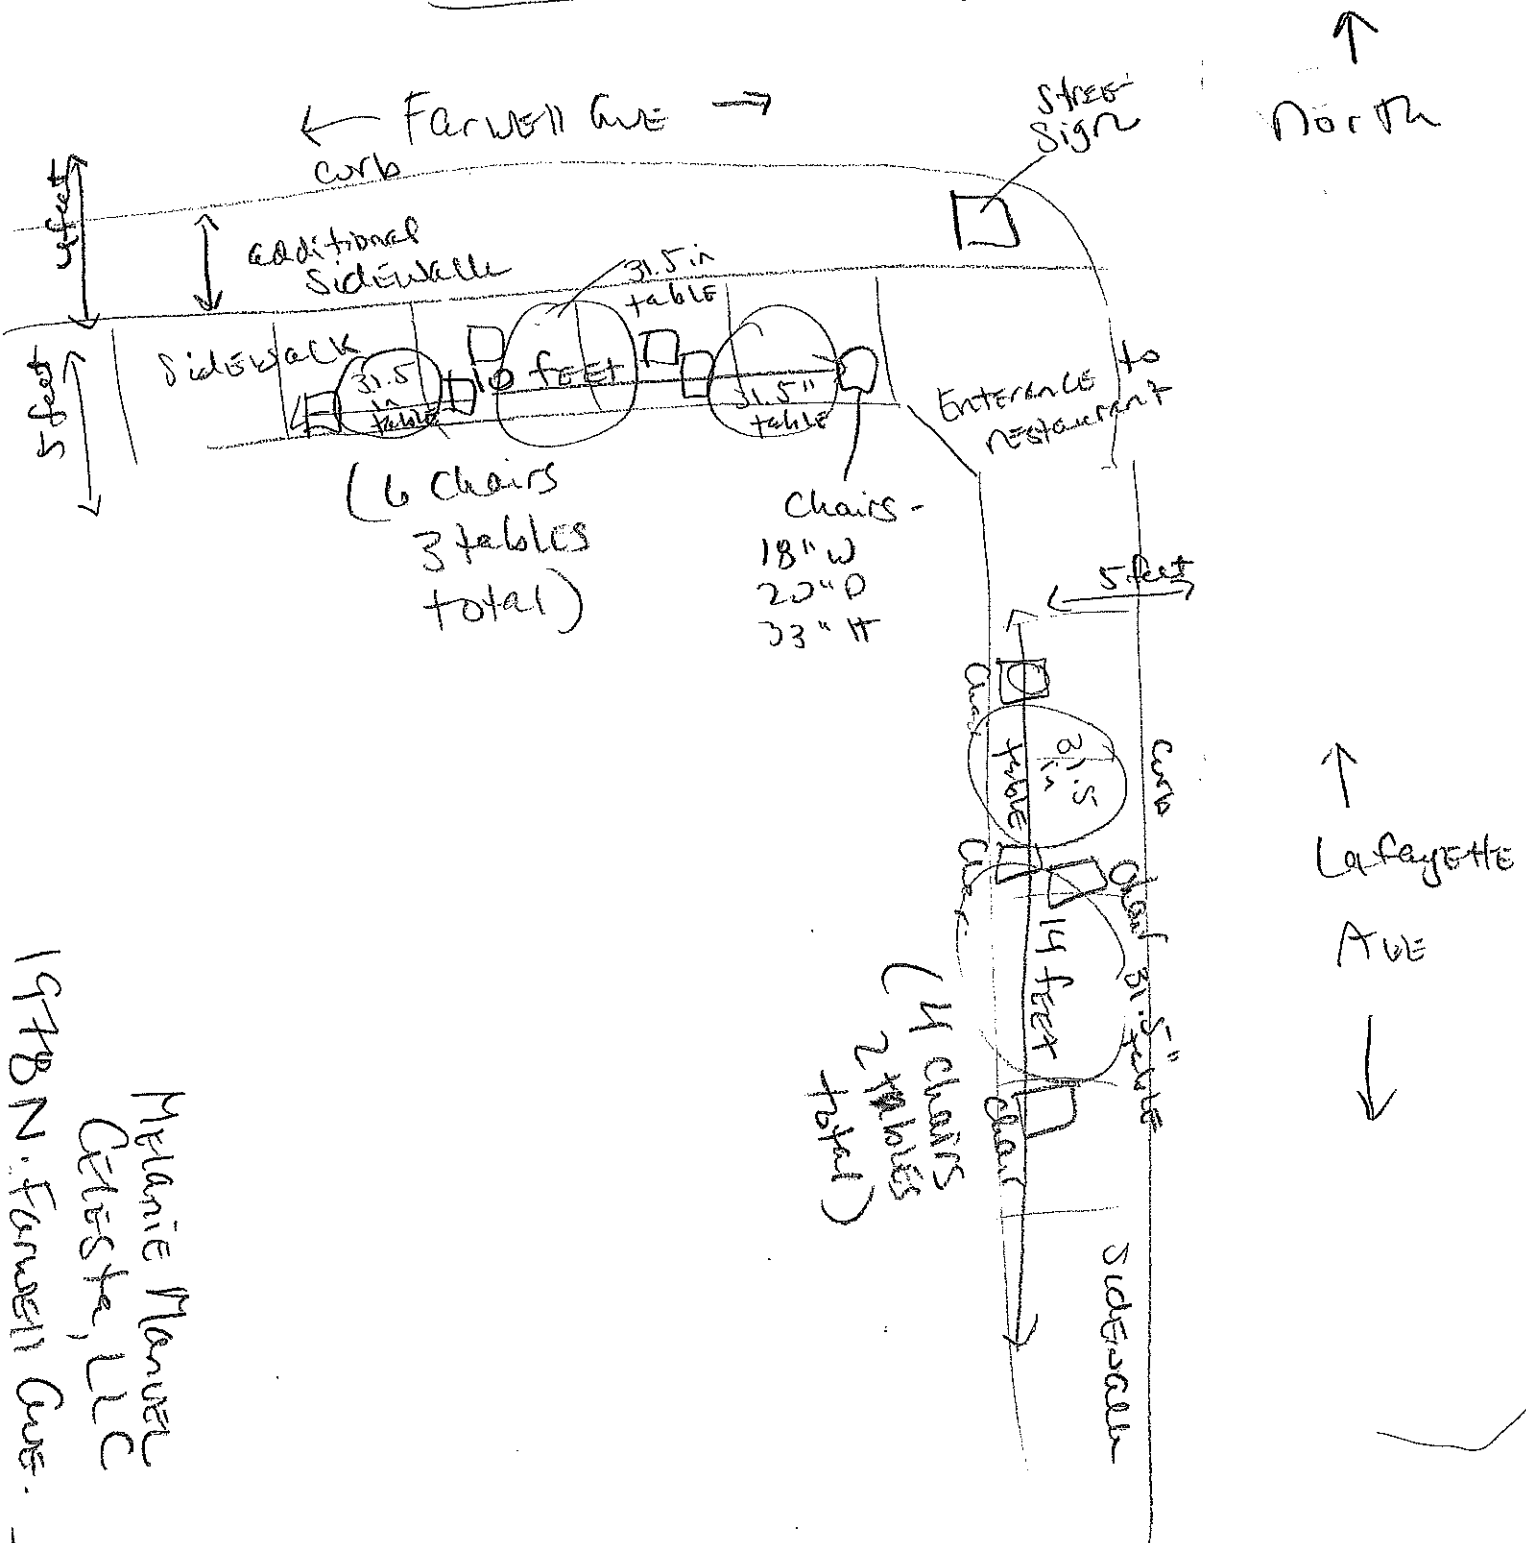 North
← Farwell Ave →
Street
Sign
curb
additional
Sidewalk
31.5 in
table
Sidewalk
5 feet
31.5
in
table
10 feet
31.5"
table
Enterance to
restaurant
(6 Chairs
3 tables
total)
Chairs -
18" W
20" D
33" H
5 feet
chair
31.5
in
table
curb
chair
chair
31.5"
table
14 feet
chair
(4 chairs
2 tables
total)
Sidewalk
Lafayette
Ave
Melanie Manuel
Celesta, LLC
1978 N. Farwell Ave.